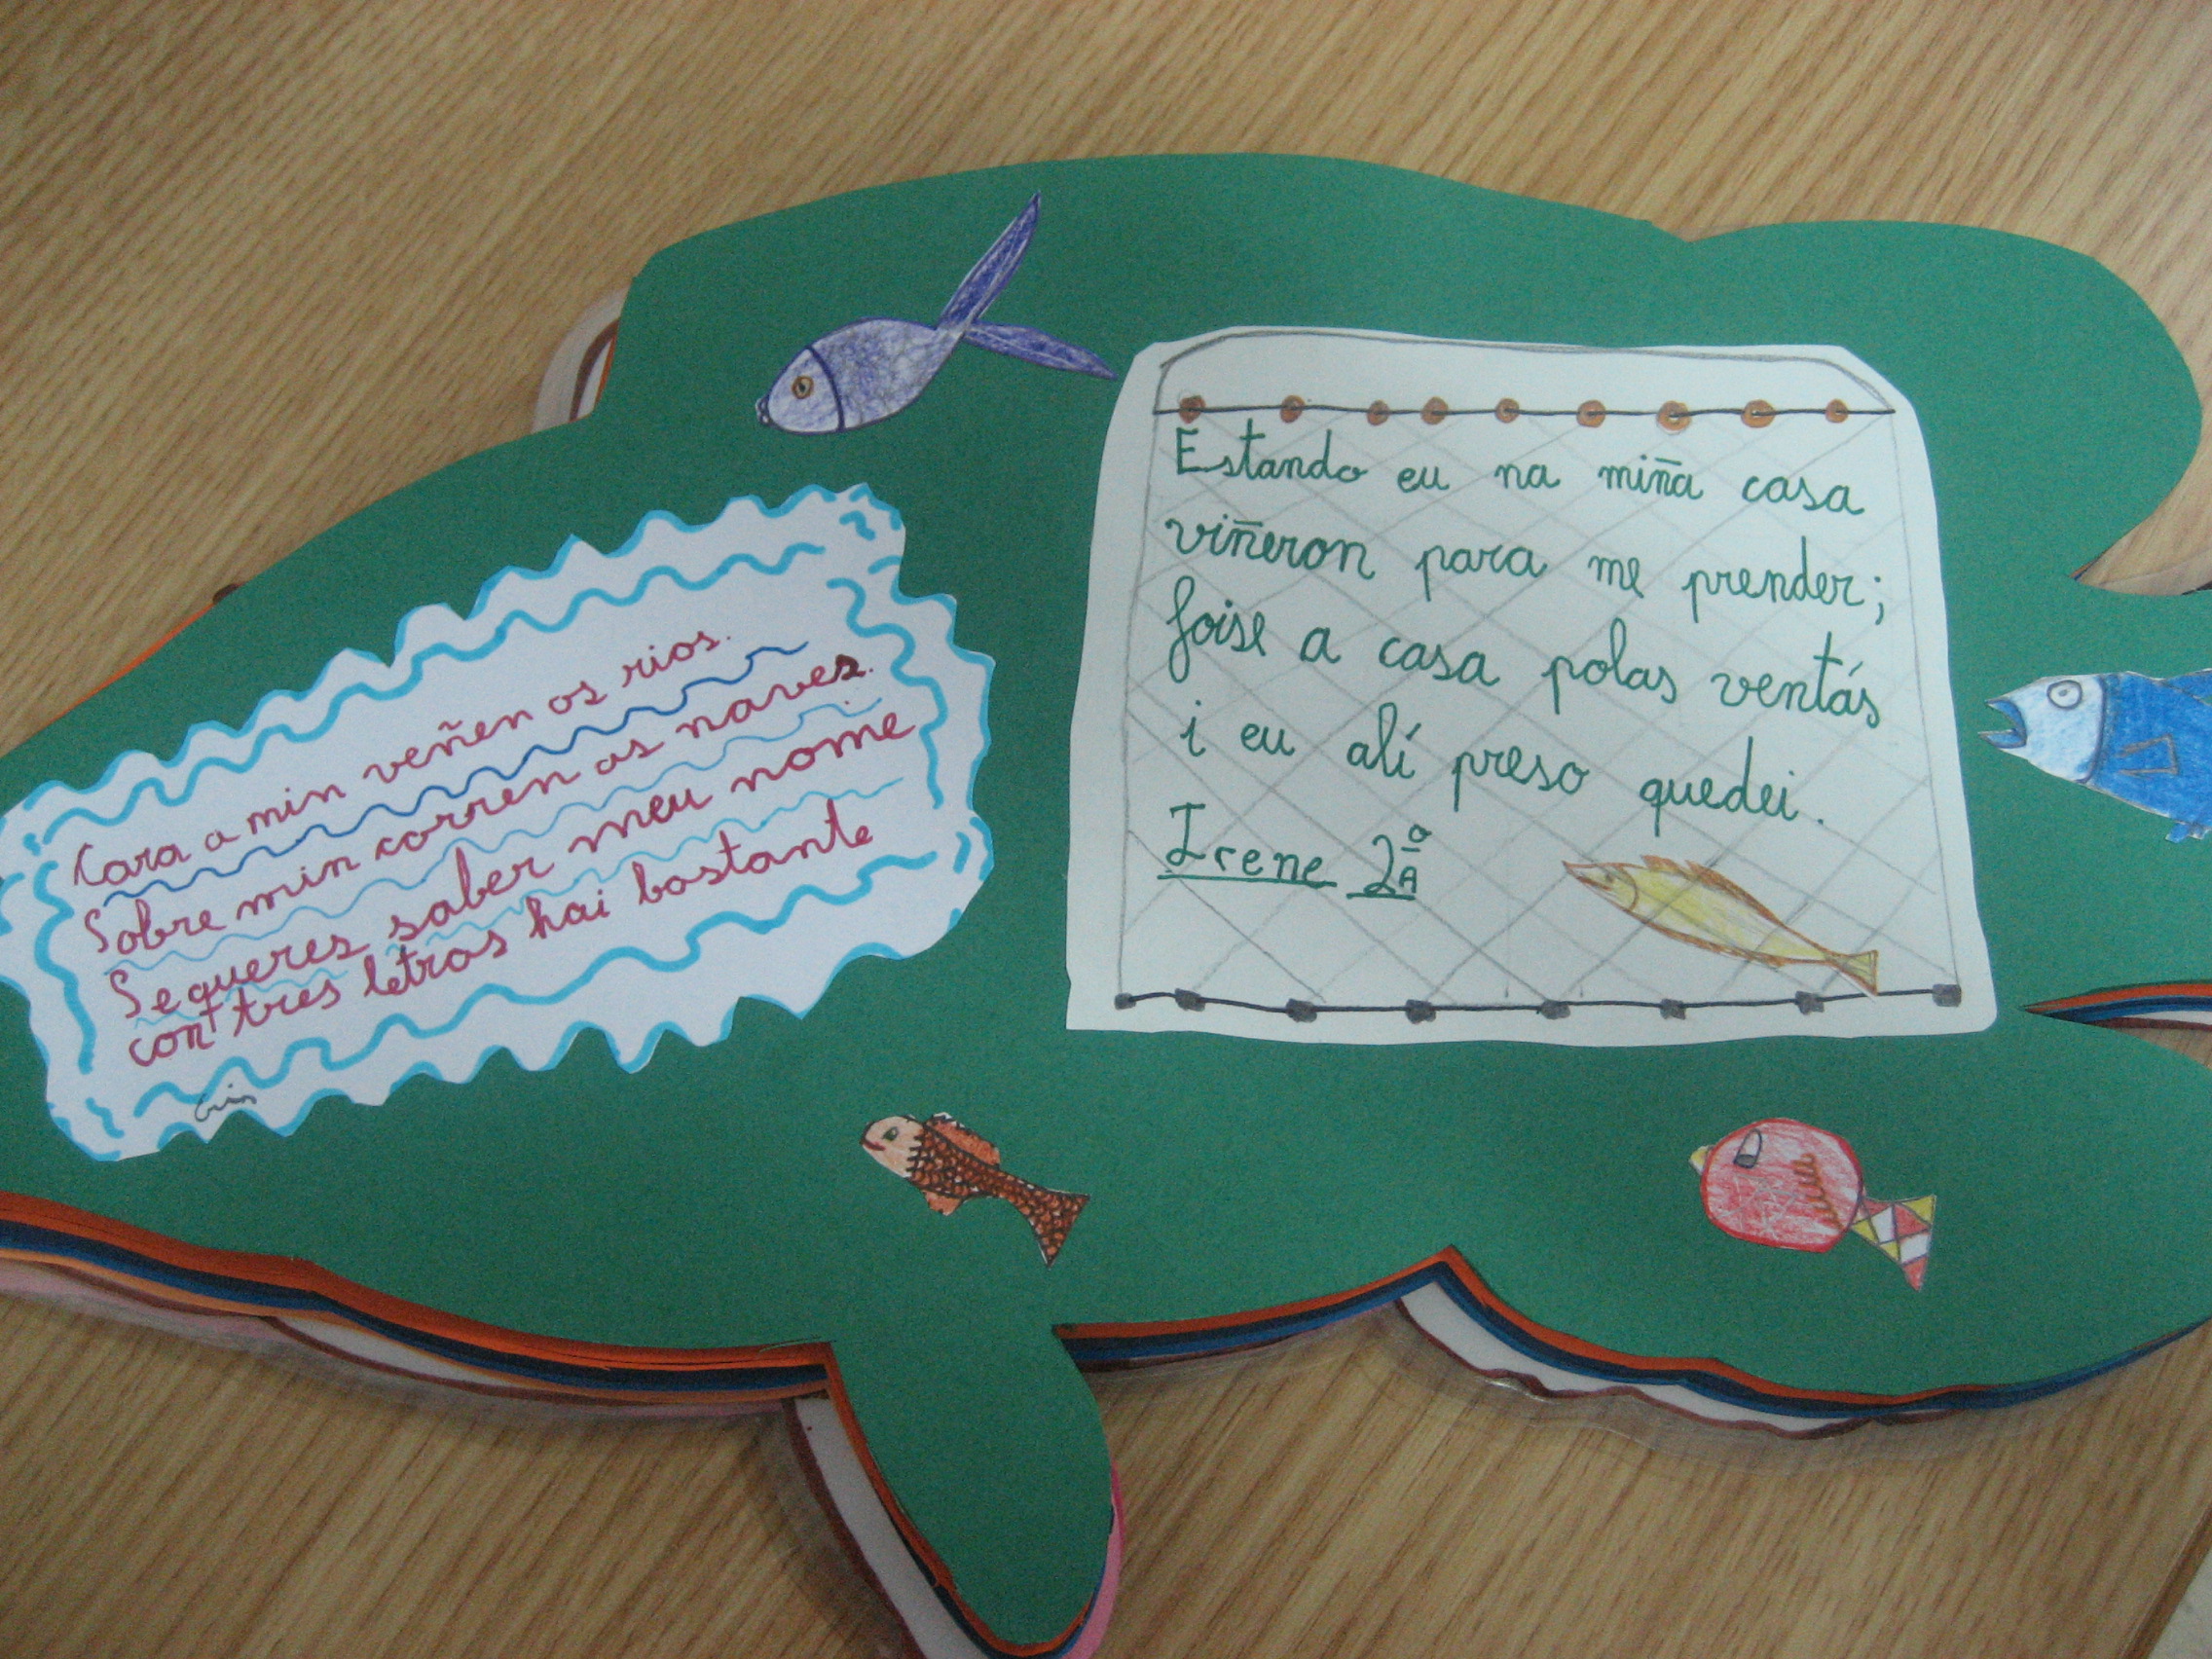 Cara a min veñen os rios.
Sobre min corren as naves.
Se queres saber meu nome
con tres letras hai bastante
Estando eu na miña casa
viñeron para me prender;
foise a casa polas ventás
i eu alí preso quedei.
Irene 2º A